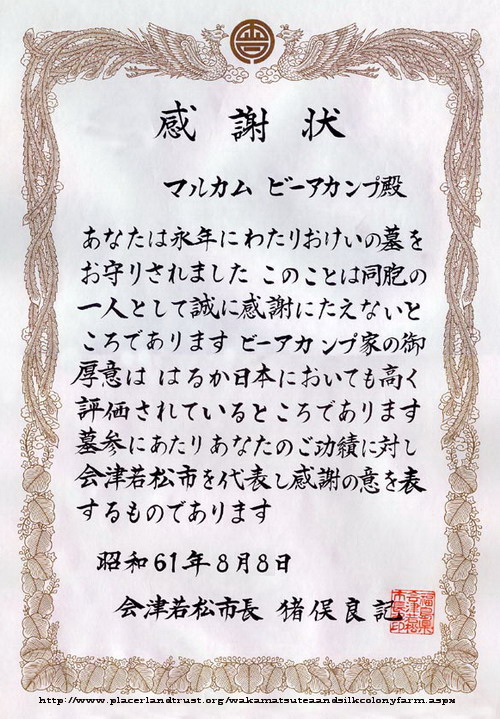 感謝状
マルカム ビーアカンプ殿
あなたは永年にわたりおけいの墓を
お守りされました このことは同胞の
一人として誠に感謝にたえないと
ころであります ビーアカンプ家の御
厚意は はるか日本においても高く
評価されているところであります
墓参にあたりあなたのご功績に対し
会津若松市を代表し感謝の意を表
するものであります
昭和61年8月8日
会津若松市長 猪俣良記
http://www.placerlandtrust.org/wakamatsuteaandsilkcolonyfarm.aspx